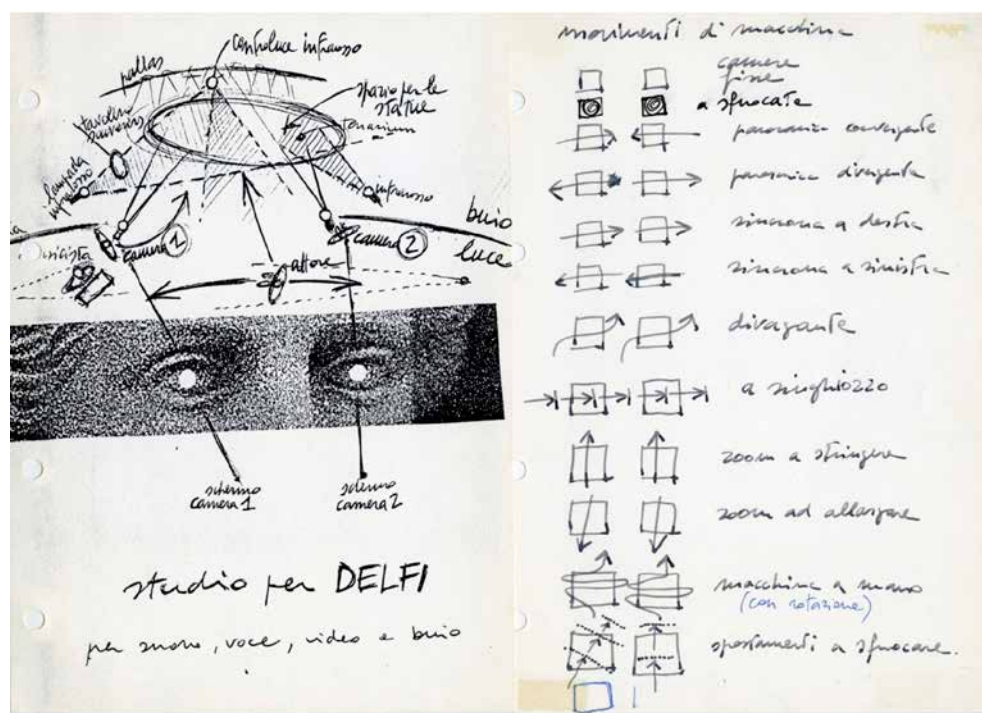 controluce infrarosso
pallas
spazio per le
statue
tenarium
tavolino
souvenirs
lampada
infrarosso
infrarosso
buio
luce
musicista
camera 1
camera 2
attore
schermo
camera 1
schermo
camera 2
studio per DELFI
per suono, voce, video e buio
movimenti di macchina
camere
fisse
a sfuocate
panoramica convergente
panoramica divergente
sincrona a destra
sincrona a sinistra
divagante
a singhiozzo
zoom a stringere
zoom ad allargare
macchina a mano
(con rotazione)
spostamenti a sfuocare.